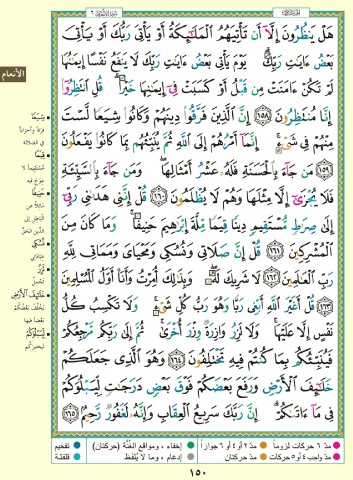 سورة الأنعام ٦
الأنعام
هَلْ يَنظُرُونَ إِلَّآ أَن تَأْتِيَهُمُ ٱلْمَلَٰٓئِكَةُ أَوْ يَأْتِيَ رَبُّكَ أَوْ يَأْتِيَ
بَعْضُ ءَايَٰتِ رَبِّكَ ۗ يَوْمَ يَأْتِي بَعْضُ ءَايَٰتِ رَبِّكَ لَا يَنفَعُ نَفْسًا إِيمَٰنُهَا
لَمْ تَكُنْ ءَامَنَتْ مِن قَبْلُ أَوْ كَسَبَتْ فِىٓ إِيمَٰنِهَا خَيْرًا ۗ قُلِ ٱنتَظِرُوٓا۟
إِنَّا مُنتَظِرُونَ ١٥٨ إِنَّ ٱلَّذِينَ فَرَّقُوا۟ دِينَهُمْ وَكَانُوا۟ شِيَعًا لَّسْتَ
مِنْهُمْ فِى شَىْءٍ ۚ إِنَّمَآ أَمْرُهُمْ إِلَى ٱللَّهِ ثُمَّ يُنَبِّئُهُم بِمَا كَانُوا۟ يَفْعَلُونَ
١٥٩ مَن جَآءَ بِٱلْحَسَنَةِ فَلَهُۥ عَشْرُ أَمْثَالِهَا ۖ وَمَن جَآءَ بِٱلسَّيِّئَةِ
فَلَا يُجْزَىٰٓ إِلَّا مِثْلَهَا وَهُمْ لَا يُظْلَمُونَ ١٦٠ قُلْ إِنَّنِى هَدَىٰنِى رَبِّىٓ
إِلَىٰ صِرَٰطٍ مُّسْتَقِيمٍ دِينًا قِيَمًا مِّلَّةَ إِبْرَٰهِيمَ حَنِيفًا ۚ وَمَا كَانَ مِنَ
ٱلْمُشْرِكِينَ ١٦١ قُلْ إِنَّ صَلَاتِى وَنُسُكِى وَمَحْيَاىَ وَمَمَاتِى لِلَّهِ
رَبِّ ٱلْعَٰلَمِينَ ١٦٢ لَا شَرِيكَ لَهُۥ ۖ وَبِذَٰلِكَ أُمِرْتُ وَأَنَا۠ أَوَّلُ ٱلْمُسْلِمِينَ
١٦٣ قُلْ أَغَيْرَ ٱللَّهِ أَبْغِى رَبًّا وَهُوَ رَبُّ كُلِّ شَىْءٍ ۚ وَلَا تَكْسِبُ كُلُّ
نَفْسٍ إِلَّا عَلَيْهَا ۚ وَلَا تَزِرُ وَازِرَةٌ وِزْرَ أُخْرَىٰ ۚ ثُمَّ إِلَىٰ رَبِّكُم مَّرْجِعُكُمْ
فَيُنَبِّئُكُم بِمَا كُنتُمْ فِيهِ تَخْتَلِفُونَ ١٦٤ وَهُوَ ٱلَّذِى جَعَلَكُمْ
خَلَٰٓئِفَ ٱلْأَرْضِ وَرَفَعَ بَعْضَكُمْ فَوْقَ بَعْضٍ دَرَجَٰتٍ لِّيَبْلُوَكُمْ
فِى مَآ ءَاتَىٰكُمْ ۗ إِنَّ رَبَّكَ سَرِيعُ ٱلْعِقَابِ وَإِنَّهُۥ لَغَفُورٌ رَّحِيمٌۢ ١٦٥
شِيَعًا
فرقا وأحزابا
في الضلالة
قِيَمًا
حَنِيفًا
الدين الحق
نُسُكِى
تَزِرُ
خَلَٰٓئِفَ ٱلْأَرْضِ
لِّيَبْلُوَكُمْ
ليختبركم
مدّ ٦ حركات لزوماً مدّ ٢ أو ٤ أو ٦ جوازاً إخفاء، ومواقع الغُنَّة (حركتان) تفخيم
مدّ واجب ٤ أو ٥ حركات مدّ حركتان إدغام، وما لا يُلفَظ قلقلة
١٥٠